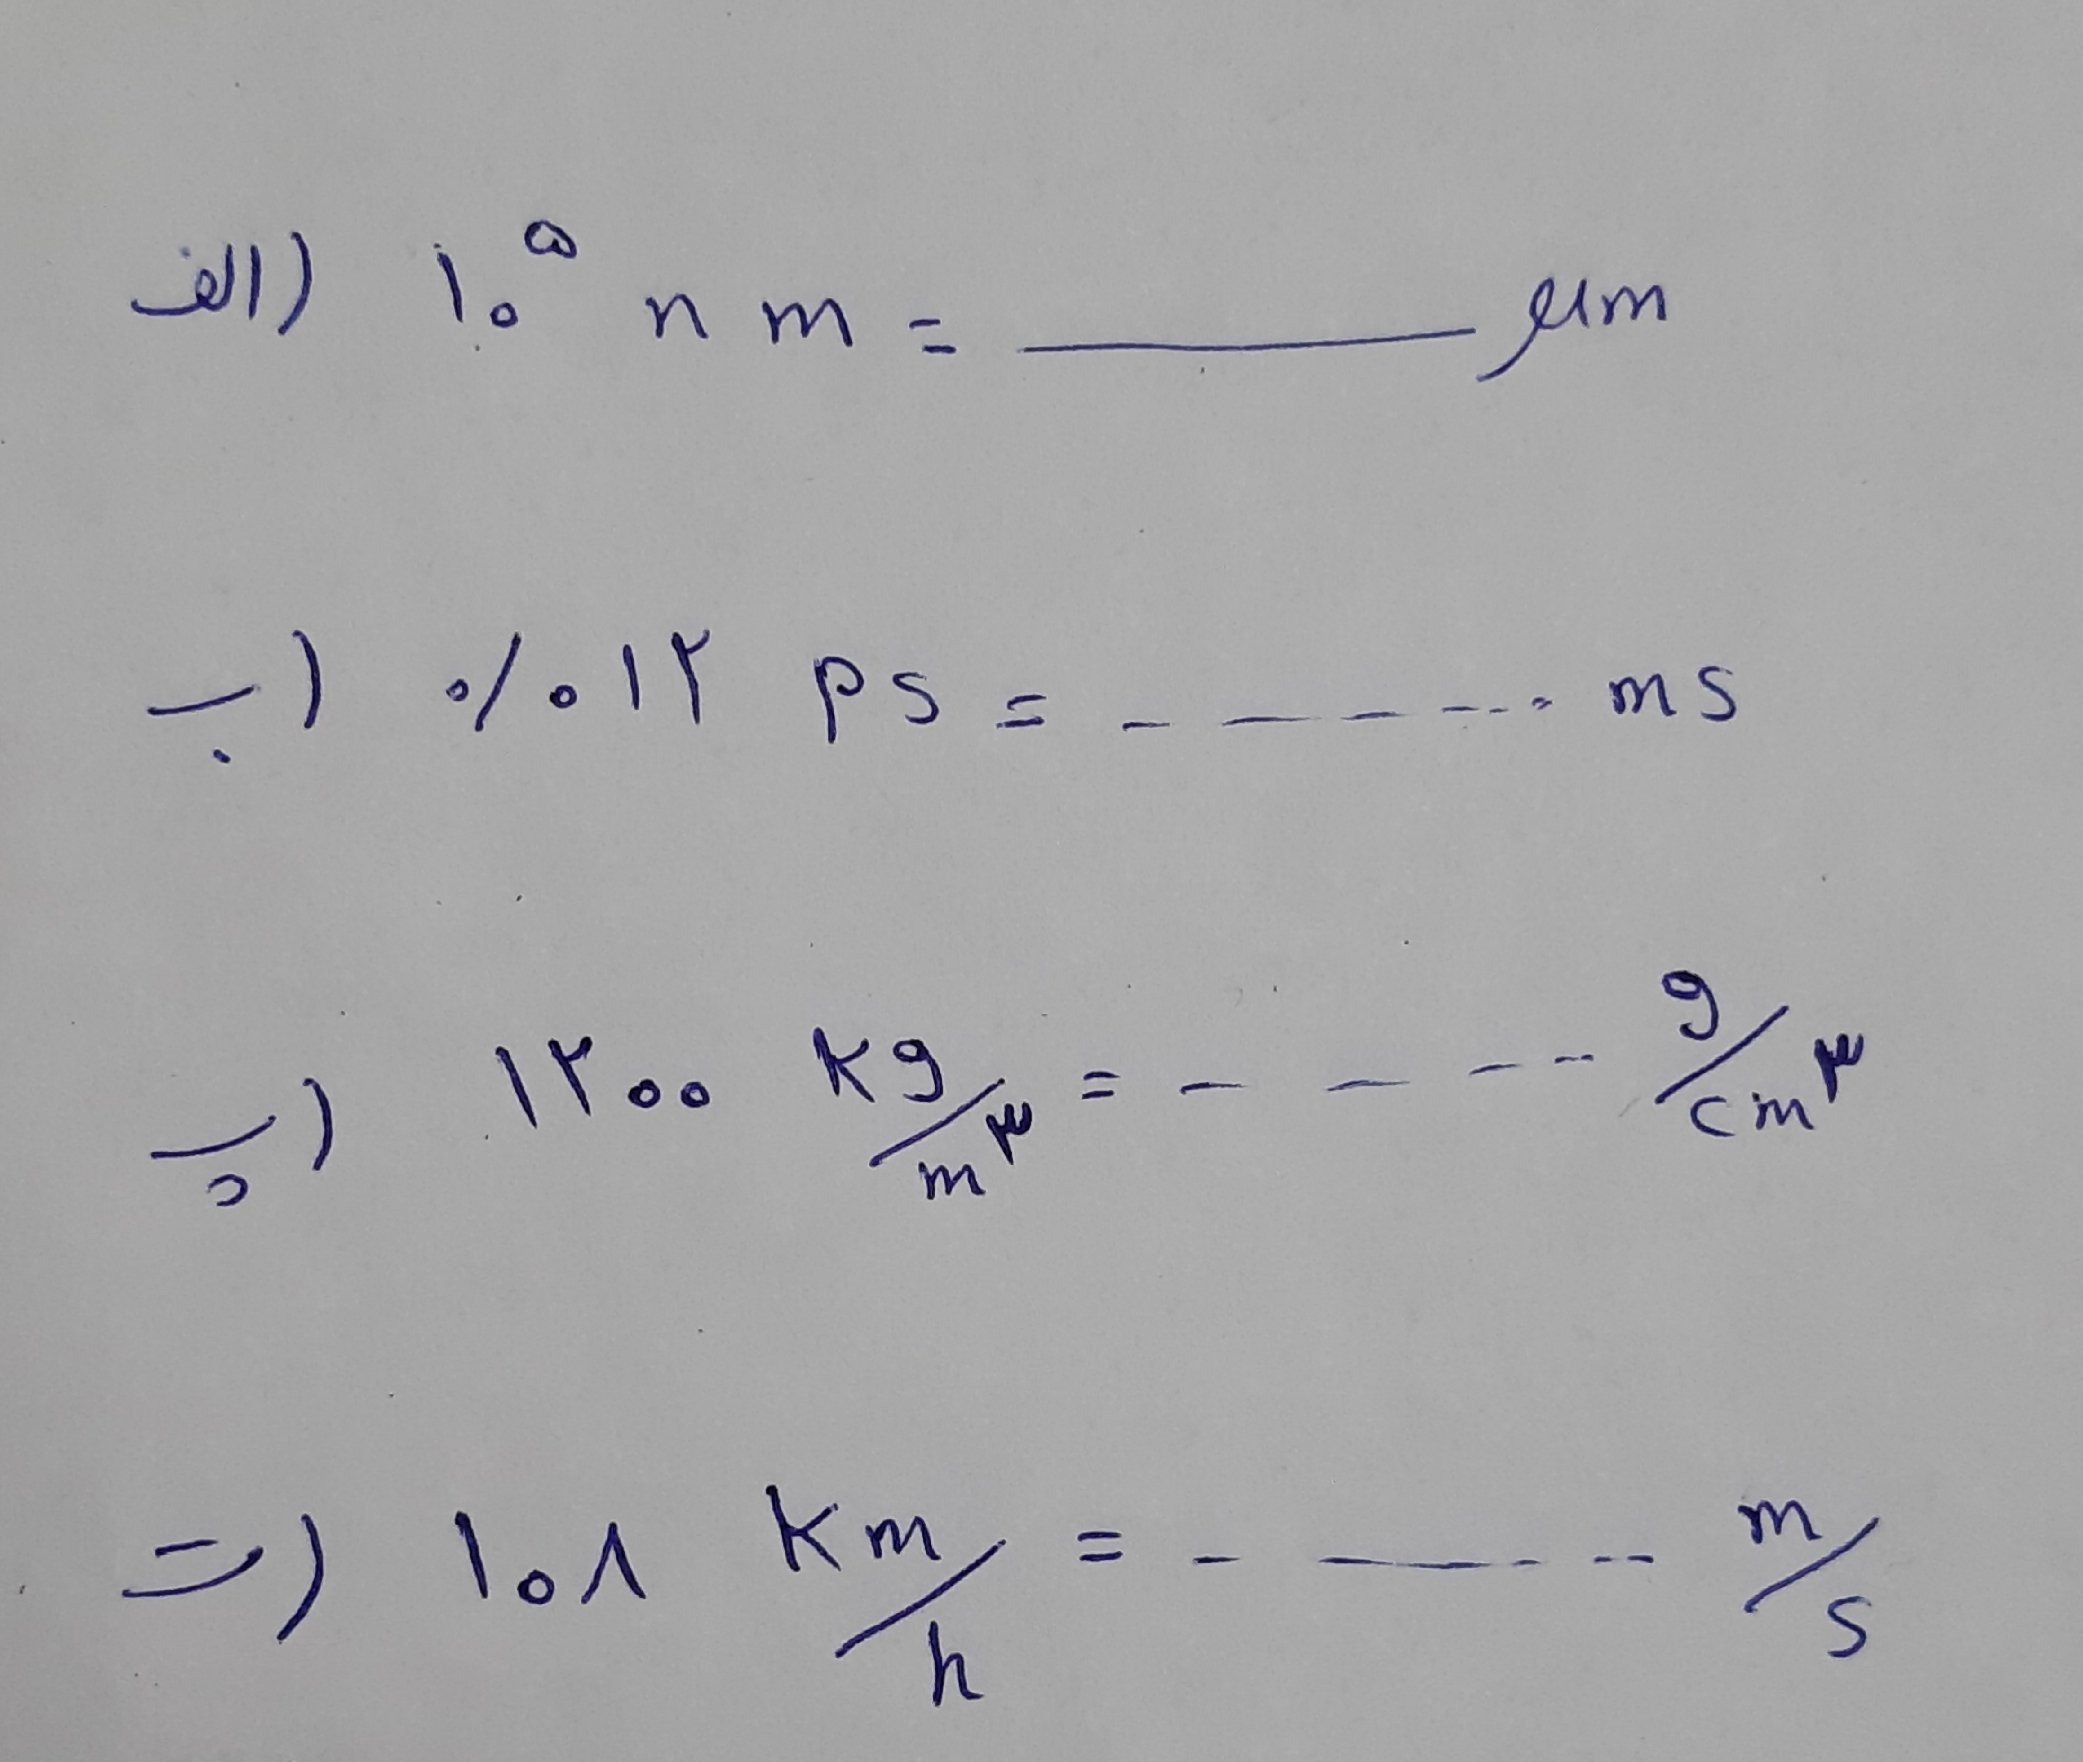 الف) ۱۰^۵ nm = ______ μm
ب) ۰/۰۱۲ ps = ------ ms
پ) ۱۲۰۰ kg/m^۳ = ----- g/cm^۳
ت) ۱۰۸ km/h = ------ m/s